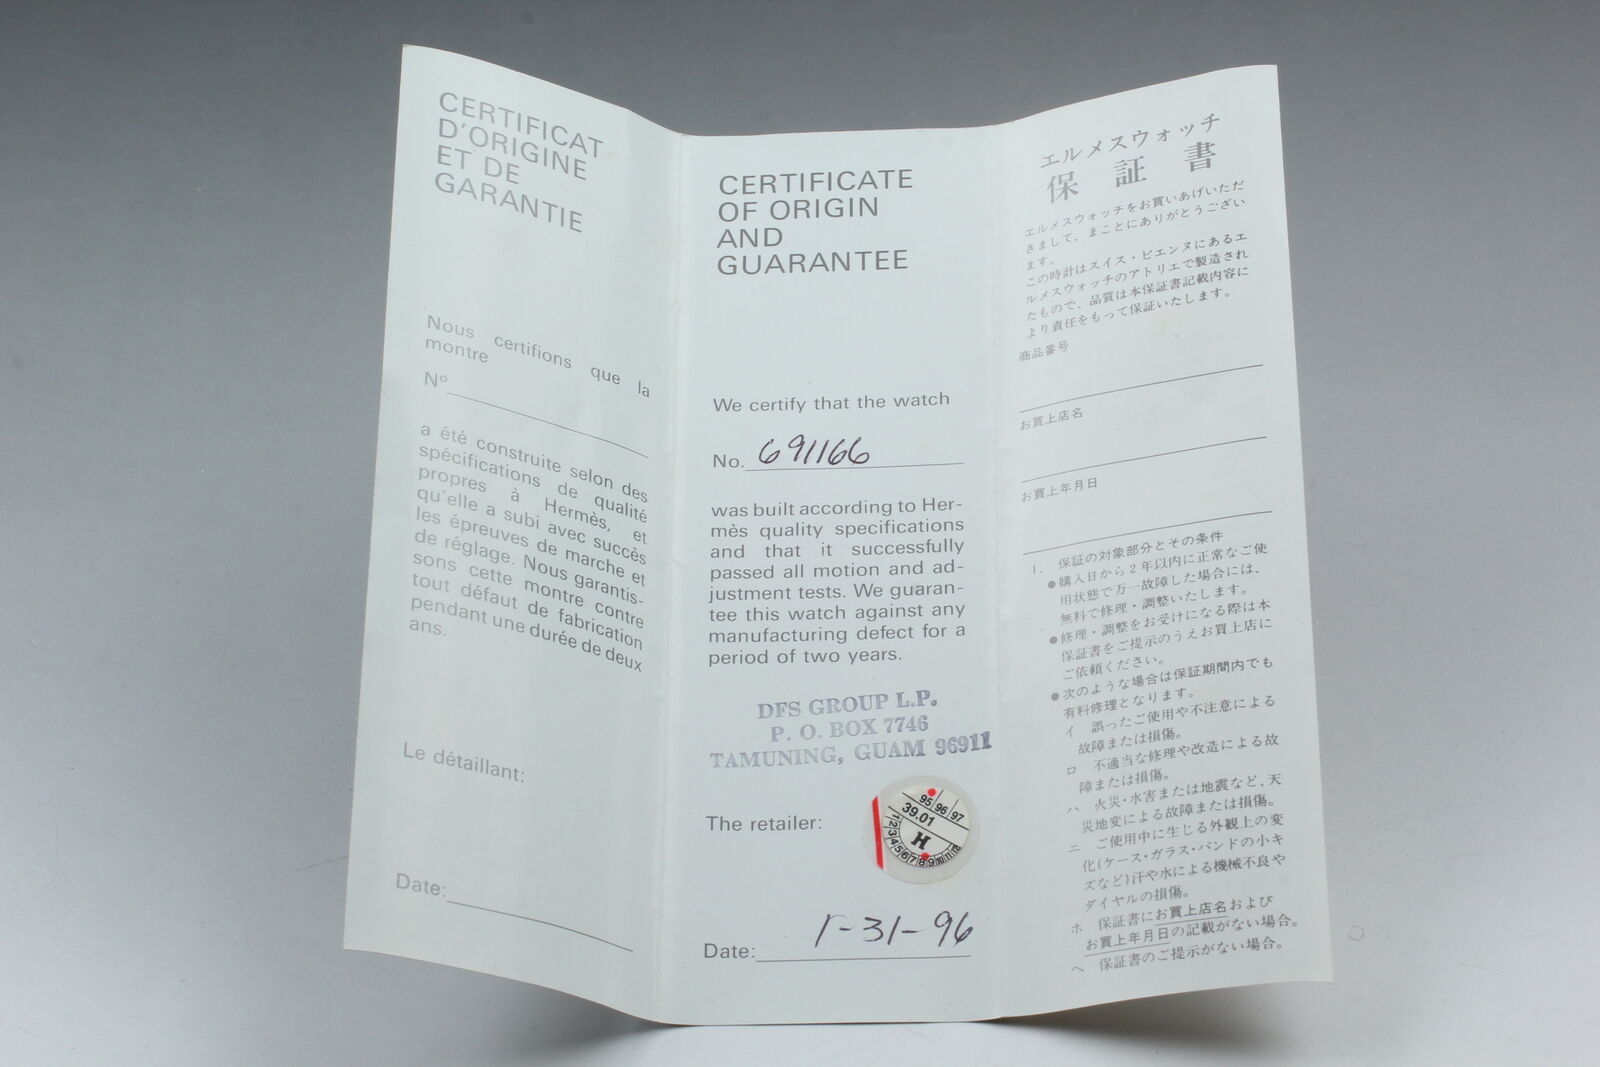 CERTIFICAT
D'ORIGINE
ET DE
GARANTIE
Nous certifions que la
montre
Nº
a été construite selon des
spécifications de qualité
propres à Hermès, et
qu'elle a subi avec succès
les épreuves de marche et
de réglage. Nous garantis-
sons cette montre contre
tout défaut de fabrication
pendant une durée de deux
ans.
Le détaillant:
Date:
CERTIFICATE
OF ORIGIN
AND
GUARANTEE
We certify that the watch
No. 691166
was built according to Her-
mès quality specifications
and that it successfully
passed all motion and ad-
justment tests. We guaran-
tee this watch against any
manufacturing defect for a
period of two years.
DFS GROUP L.P.
P. O. BOX 7746
TAMUNING, GUAM 96911
The retailer:
95 96 97
39.01
H
1 2 3 4 5 6 7 8 9 10 11 12
Date: 1-31-96
エルメスウォッチ
保証書
エルメスウォッチをお買いあげいただ
きまして、まことにありがとうござい
ます。
この時計はスイス・ビエンヌにあるエ
ルメスウォッチのアトリエで製造され
たもので、品質は本保証書記載内容に
より責任をもって保証いたします。
商品番号
お買上店名
お買上年月日
1. 保証の対象部分とその条件
●購入日から2年以内に正常なご使
用状態で万一故障した場合には、
無料で修理・調整いたします。
●修理・調整をお受けになる際は本
保証書をご提示のうえお買上店に
ご依頼ください。
●次のような場合は保証期間内でも
有料修理となります。
イ 誤ったご使用や不注意による
故障または損傷。
ロ 不適当な修理や改造による故
障または損傷。
ハ 火災・水害または地震など、天
災地変による故障または損傷。
ニ ご使用中に生じる外観上の変
化(ケース・ガラス・バンドの小キ
ズなど)汗や水による機械不良や
ダイヤルの損傷。
ホ 保証書にお買上店名および
お買上年月日の記載がない場合。
ヘ 保証書のご提示がない場合。